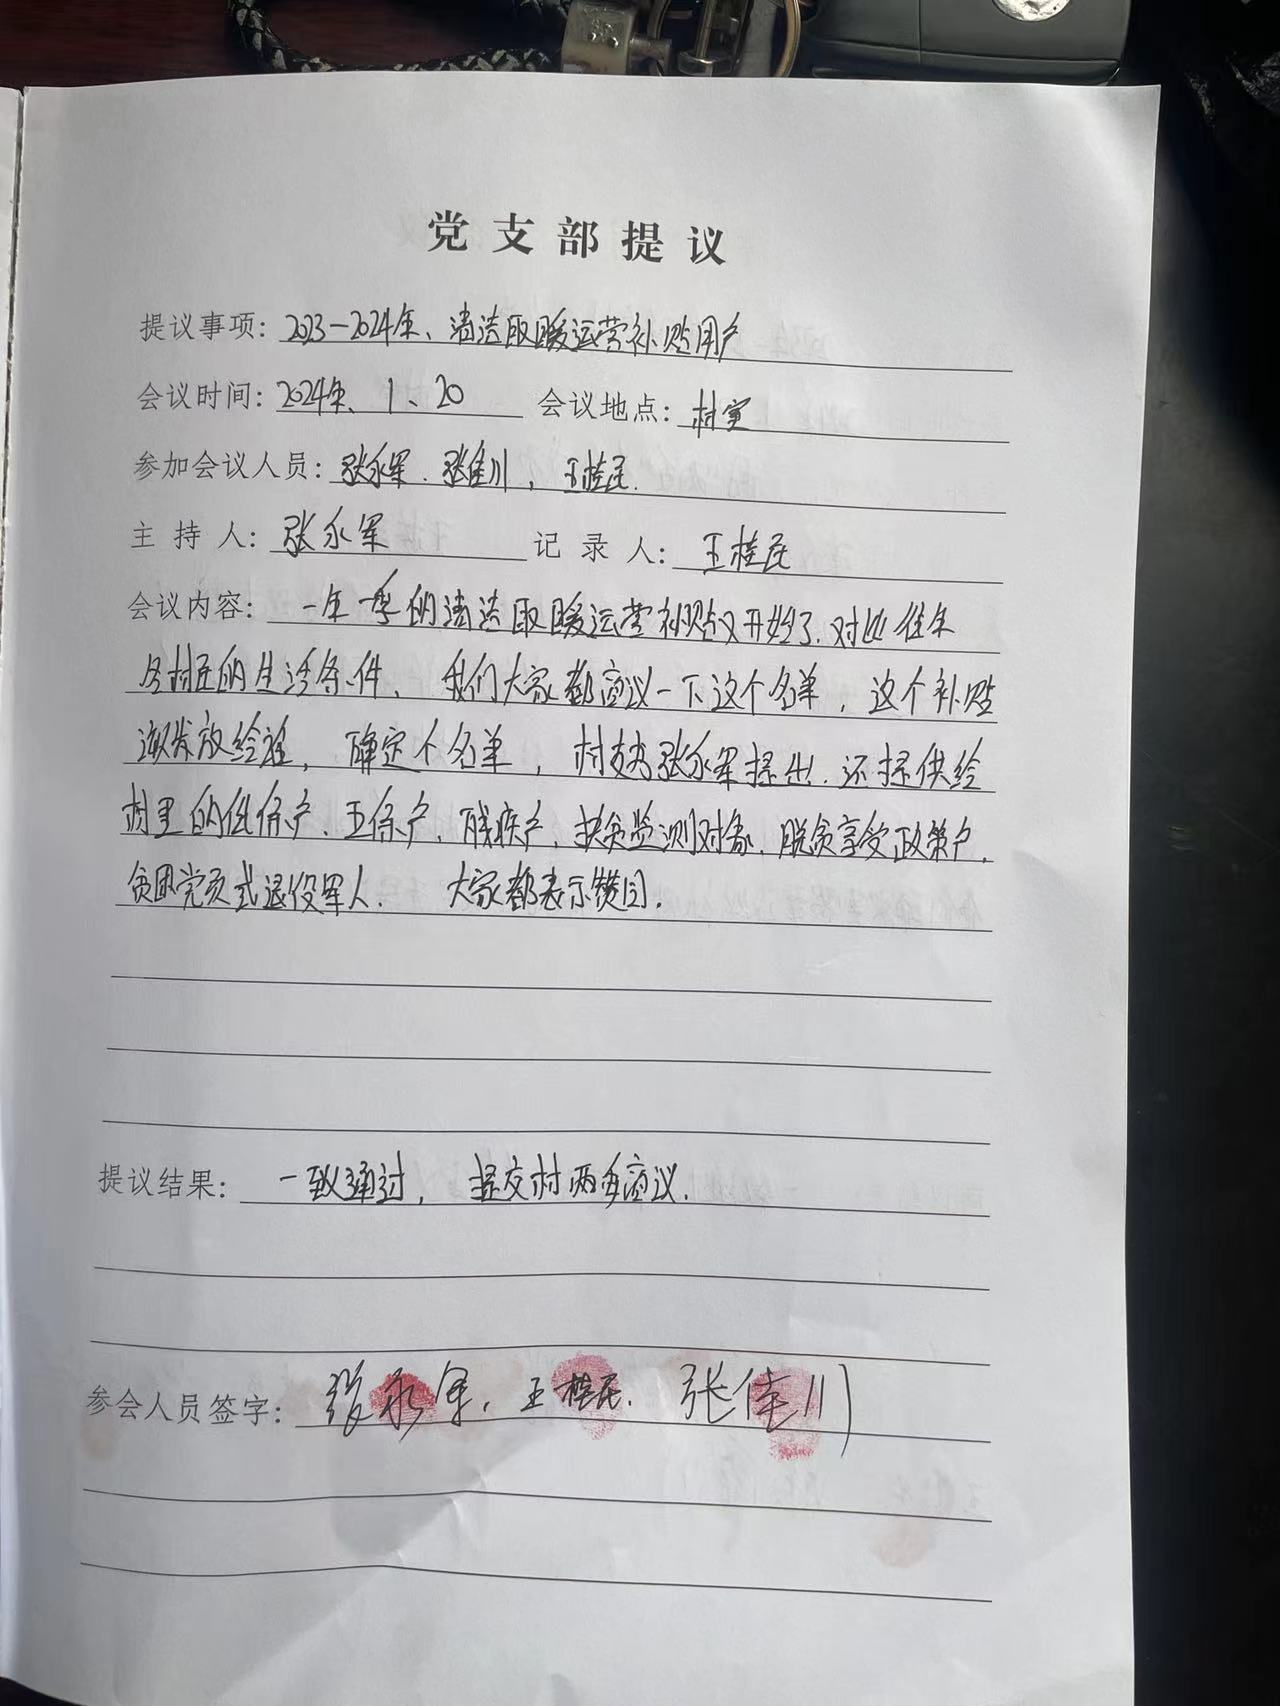 党支部提议
提议事项：2023—2024年、清洁取暖运营补贴用户
会议时间：2024年、1、20 会议地点：村室
参加会议人员：张永军、张佳川，王桂民.
主持人：张永军 记录人：王桂民
会议内容：一年一季的清洁取暖运营补贴又开始了.对比往年
各村民的生活条件、我们大家都商议一下这个名单，这个补贴
该发放给谁，确定个名单，村支书张永军提出.还提供给
村里的低保户、五保户、残疾户、扶贫监测对象、脱贫享受政策户、
贫困党员或退役军人. 大家都表示赞同.
提议结果：一致通过，提交村两委商议.
参会人员签字：张永军，王桂民. 张佳川